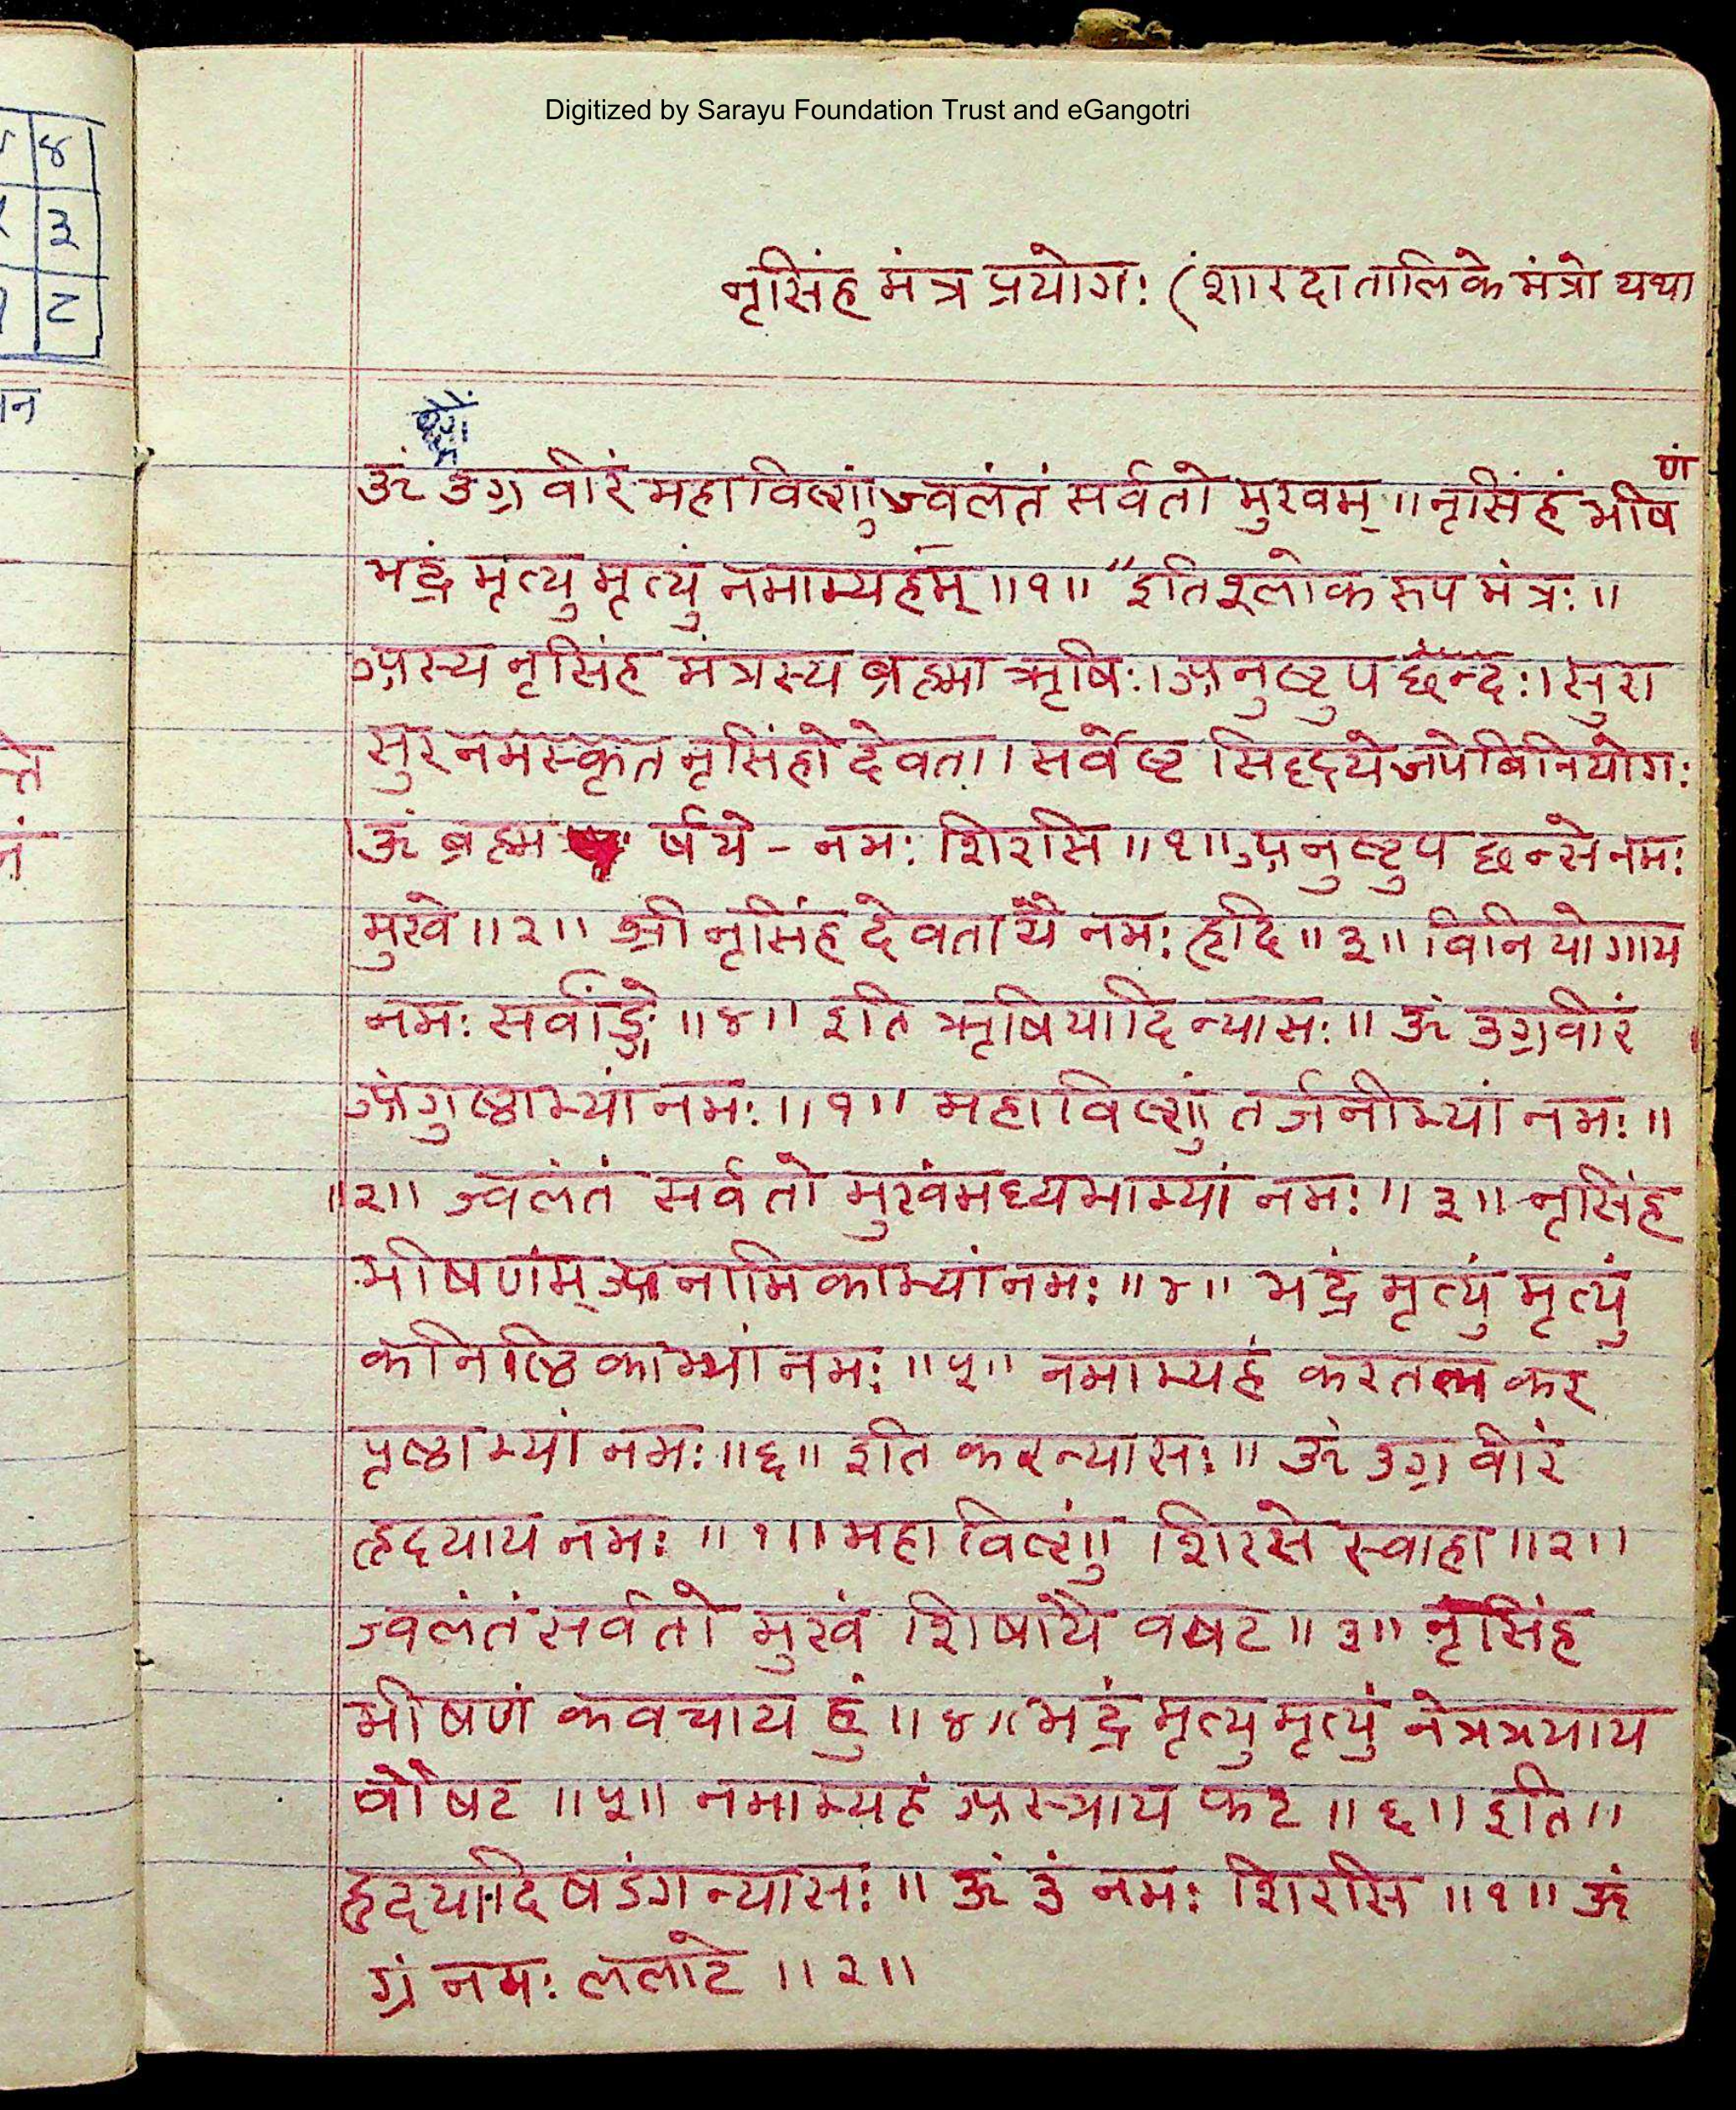 Digitized by Sarayu Foundation Trust and eGangotri
४
३
८
नृसिंह मंत्र प्रयोगः (शारदातालिके मंत्रो यथा
ॐ उग्र वीरं महाविष्णुं ज्वलंतं सर्वतो मुखम् ॥ नृसिंहं भीषणं
भद्रं मृत्यु मृत्युं नमाम्यहंम् ॥१॥ "इति श्लोक रूप मंत्रः ॥
अस्य नृसिंह मंत्रस्य ब्रह्मा ऋषिः। अनुष्टुप छन्दः। सुरा
सुर नमस्कृत नृसिंहो देवता। सर्वेष्ट सिद्धये जपे बिनियोगः
ॐ ब्रह्म र्षये - नमः शिरसि ॥१॥ अनुष्टुप छन्से नमः
मुखे ॥२॥ श्री नृसिंह देवतायै नमः हृदि ॥३॥ विनियोगाय
नमः सर्वाङ्गे ॥४॥ इति ऋषियादि न्यासः ॥ ॐ उग्र वीरं
अंगुष्ठाभ्यां नमः ॥१॥ महाविष्णुं तर्जनीभ्यां नमः ॥
॥२॥ ज्वलंतं सर्वतो मुखंमध्यमाभ्यां नमः ॥३॥ नृसिंह
भीषणंम् अनामिकाभ्यां नमः ॥४॥ भद्रं मृत्युं मृत्युं
कनिष्ठिकाभ्यां नमः ॥५॥ नमाम्यहं करतल कर
पृष्ठाभ्यां नमः ॥६॥ इति करन्यासः ॥ ॐ उग्र वीरं
हृदयाय नमः ॥१॥ महाविष्णुं शिरसे स्वाहा ॥२॥
ज्वलंतं सर्वतो मुखं शिषायै वषट ॥३॥ नृसिंह
भीषणं कवचाय हुं ॥४॥ भद्रं मृत्यु मृत्युं नेत्रत्रयाय
वौषट ॥५॥ नमाम्यहं अस्त्राय फट ॥६॥ इति ॥
हृदयादि षडंग न्यासः ॥ ॐ उं नमः शिरसि ॥१॥ ॐ
ग्रं नमः ललाटे ॥२॥